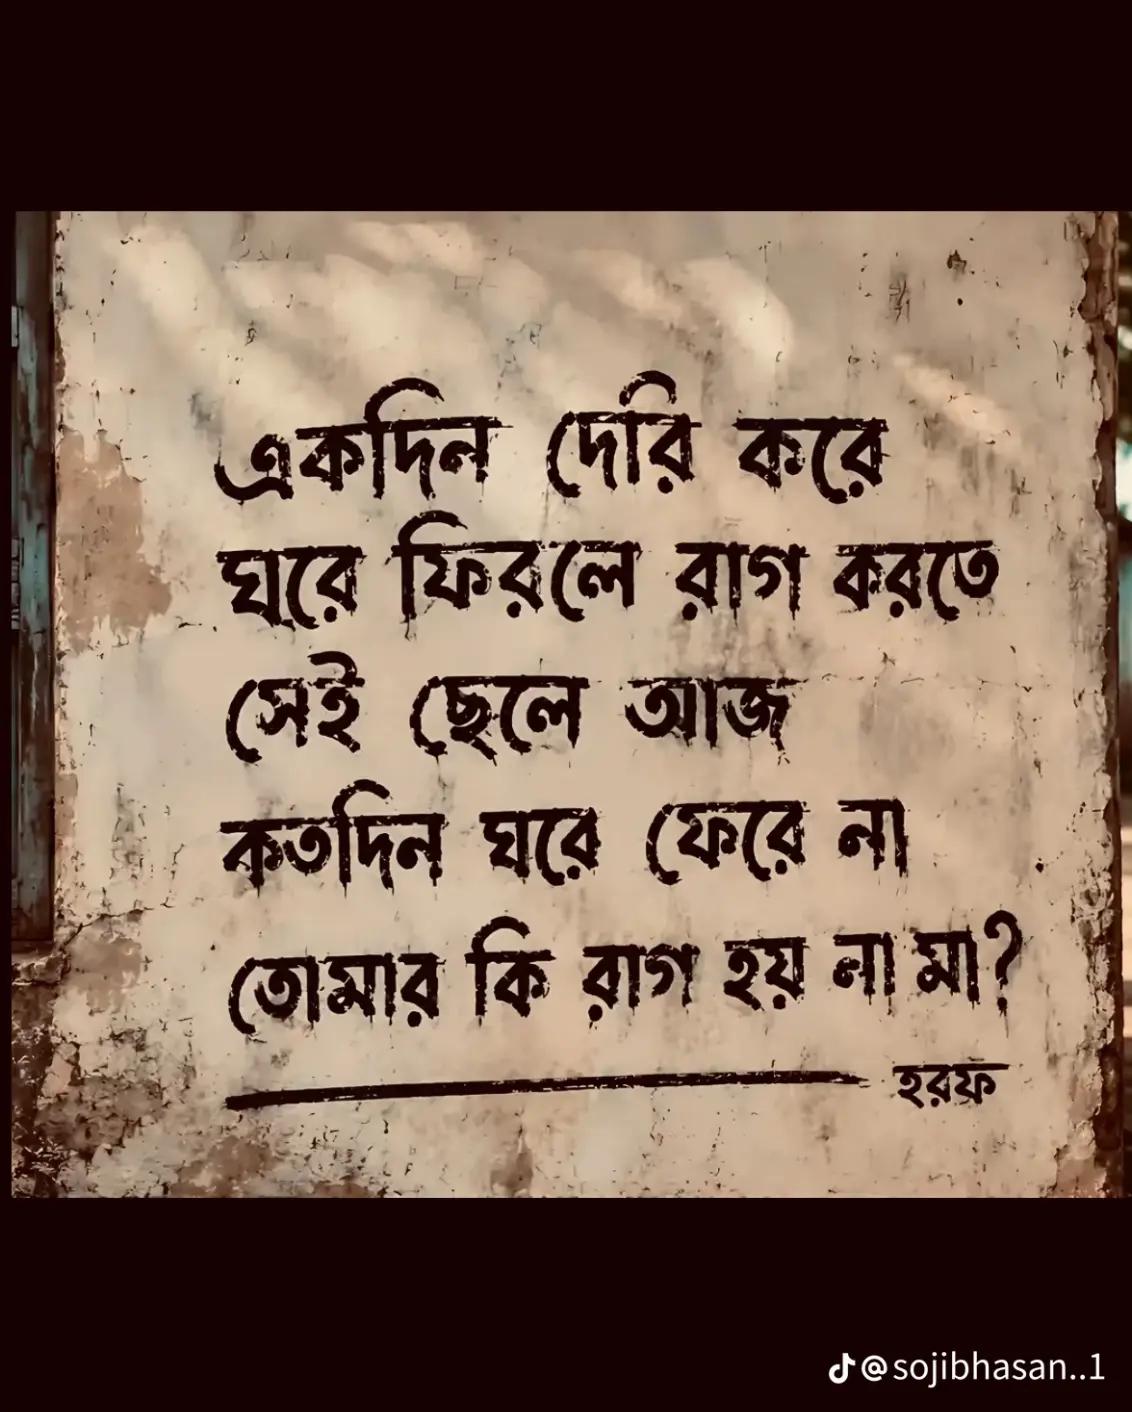 একদিন দেরি করে
ঘরে ফিরলে রাগ করতে
সেই ছেলে আজ
কতদিন ঘরে ফেরে না
তোমার কি রাগ হয় না মা?
হরফ
@sojibhasan..1